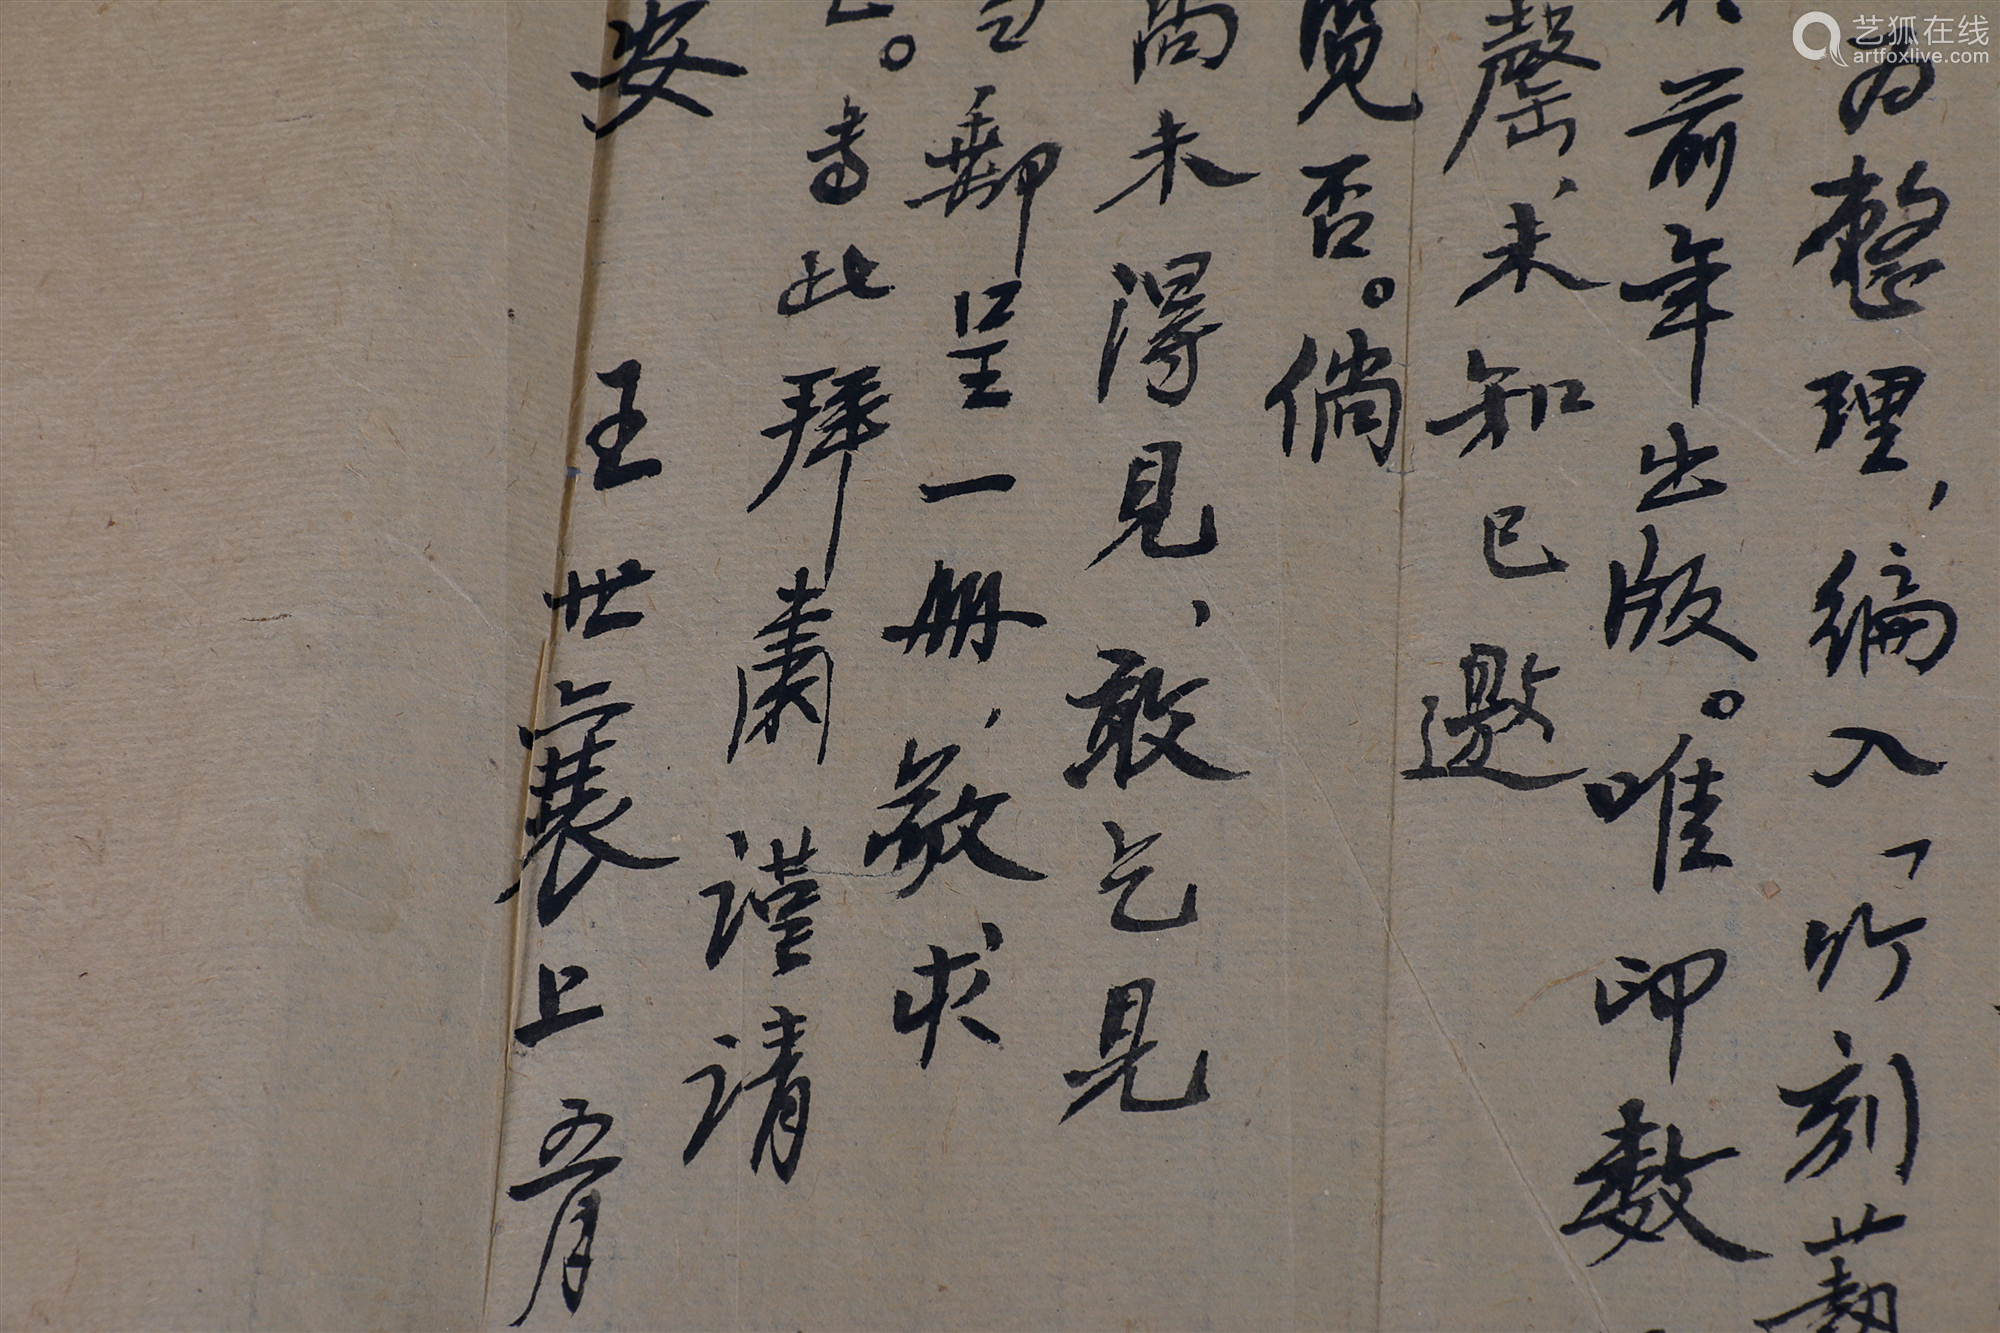 为整理，编入「竹刻艺
前年出版。唯印数
罄，未知已邀
览否。倘
尚未得见，敢乞见
邮呈一册，敬求
。专此拜肃 谨请
安
王世襄上 五月
艺狐在线
artfoxlive.com